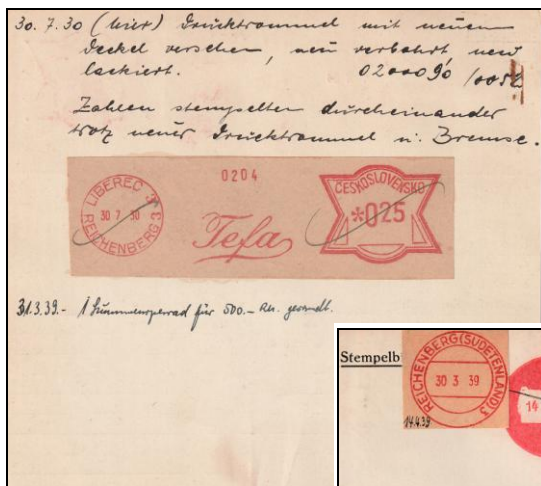 30.7.30 (hier) Drucktrommel mit neuen
Deckel versehen, neu verbohrt, neu
lackiert. 0200090
Zahlen stempelten durcheinander
trotz neuer Drucktrommel u. Bremse.
LIBEREC 3
30 7 30
REICHENBERG 3
0204
Tefa
ČESKOSLOVENSKO
*025
31.3.39.- 1 für 500.- RM.
Stempelb
REICHENBERG (SUDETENLAND) 3
30 3 39
14.4.39
14